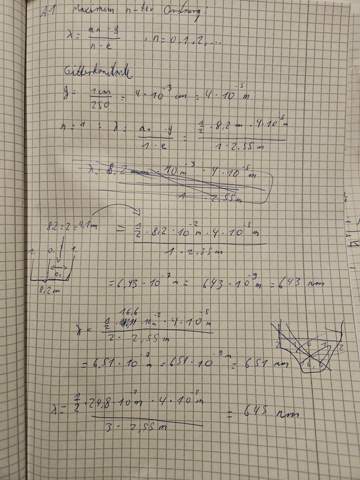 2.1 Maximum n-ter Ordnung:
λ = an · g / n · e , n = 0, 1, 2, ...
Gitterkonstante
g = 1cm / 250 = 4 · 10^-3 cm = 4 · 10^-5 m
n = 1 : λ = an · g / 1 · e = 1/2 · 8,2 m · 4 · 10^-5 m / 1 · 2,55 m
λ = 8,2 10^-3 m · 4 · 10^-5 m / 1 · 2,55 m
82 : 2 = 4,1 m = 1/2 · 8,2 · 10^-2 m · 4 · 10^-5 m / 1 · 2,55 m
1. 0. 1.
8,2 m
= 6,43 · 10^-7 m = 643 · 10^-9 m = 643 nm
λ = 1/2 · 16,6 · 10^-2 m · 4 · 10^-5 m / 2 · 2,55 m
= 6,51 · 10^-7 m = 651 · 10^-9 m = 651 nm
λ = 1/2 · 24,8 · 10^-2 m · 4 · 10^-5 m / 3 · 2,55 m = 645 nm